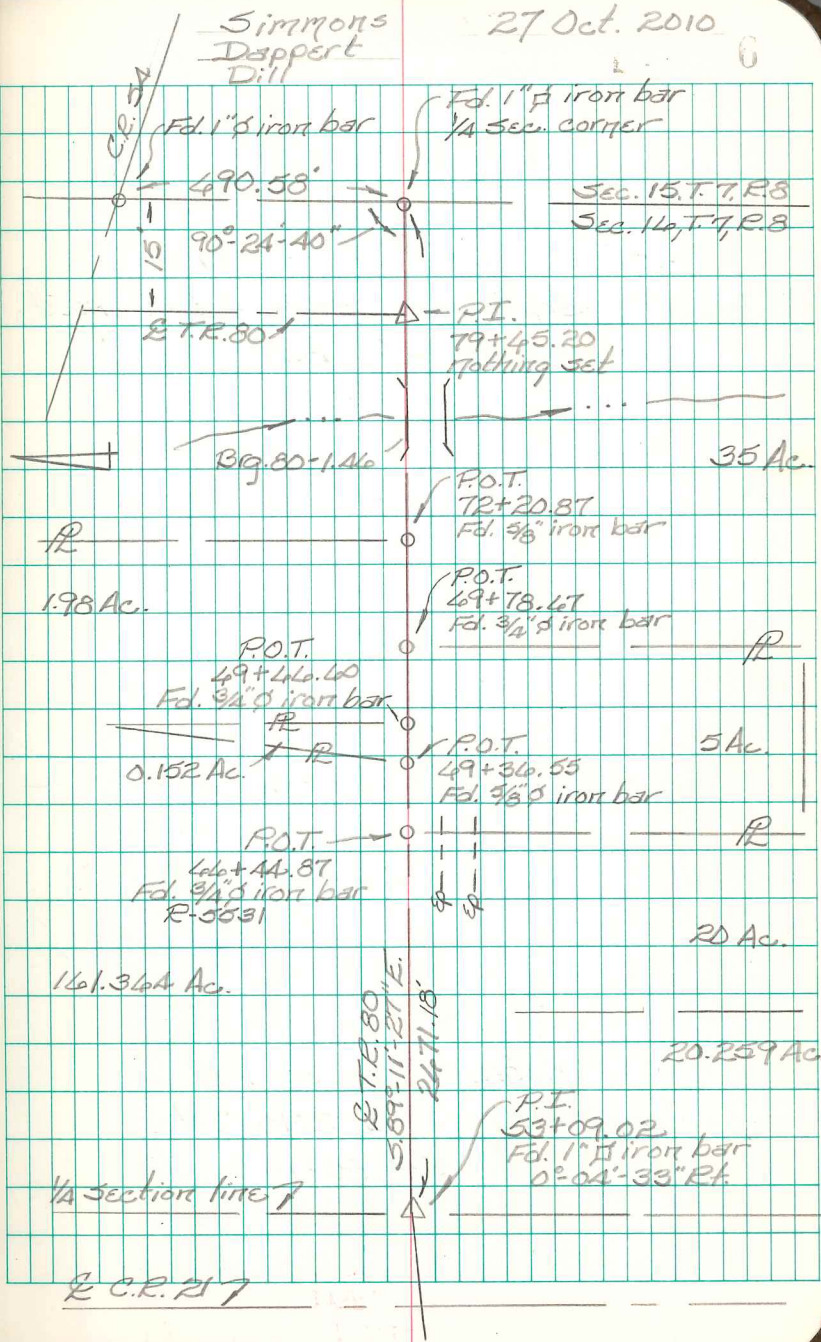 Simmons
Dappert
Dill
27 Oct. 2010
6
C.R. 54
Fd. 1"ø iron bar
Fd. 1"⌑ iron bar
1/4 Sec. corner
490.58'
Sec. 15, T.7, R.8
Sec. 16, T.7, R.8
90°-24'-40"
15'
℄ T.R. 80
P.I.
79+65.20
nothing set
Brg. 80-1.46
35 Ac.
P.O.T.
72+20.87
Fd. 5/8" iron bar
PL
1.98 Ac.
P.O.T.
69+78.67
Fd. 3/4"ø iron bar
PL
P.O.T.
69+66.60
Fd. 3/4"ø iron bar
PL
PL
0.152 Ac.
P.O.T.
69+36.55
Fd. 5/8"ø iron bar
5 Ac.
P.O.T.
66+44.87
Fd. 3/4"ø iron bar
R-5531
PL
EP
EP
20 Ac.
161.364 Ac.
℄ T.R. 80
S.89°-11'-27"E.
2671.18'
20.259 Ac
P.I.
53+09.02
Fd. 1"⌑ iron bar
0°-04'-33" Rt.
1/4 section line
℄ C.R. 21